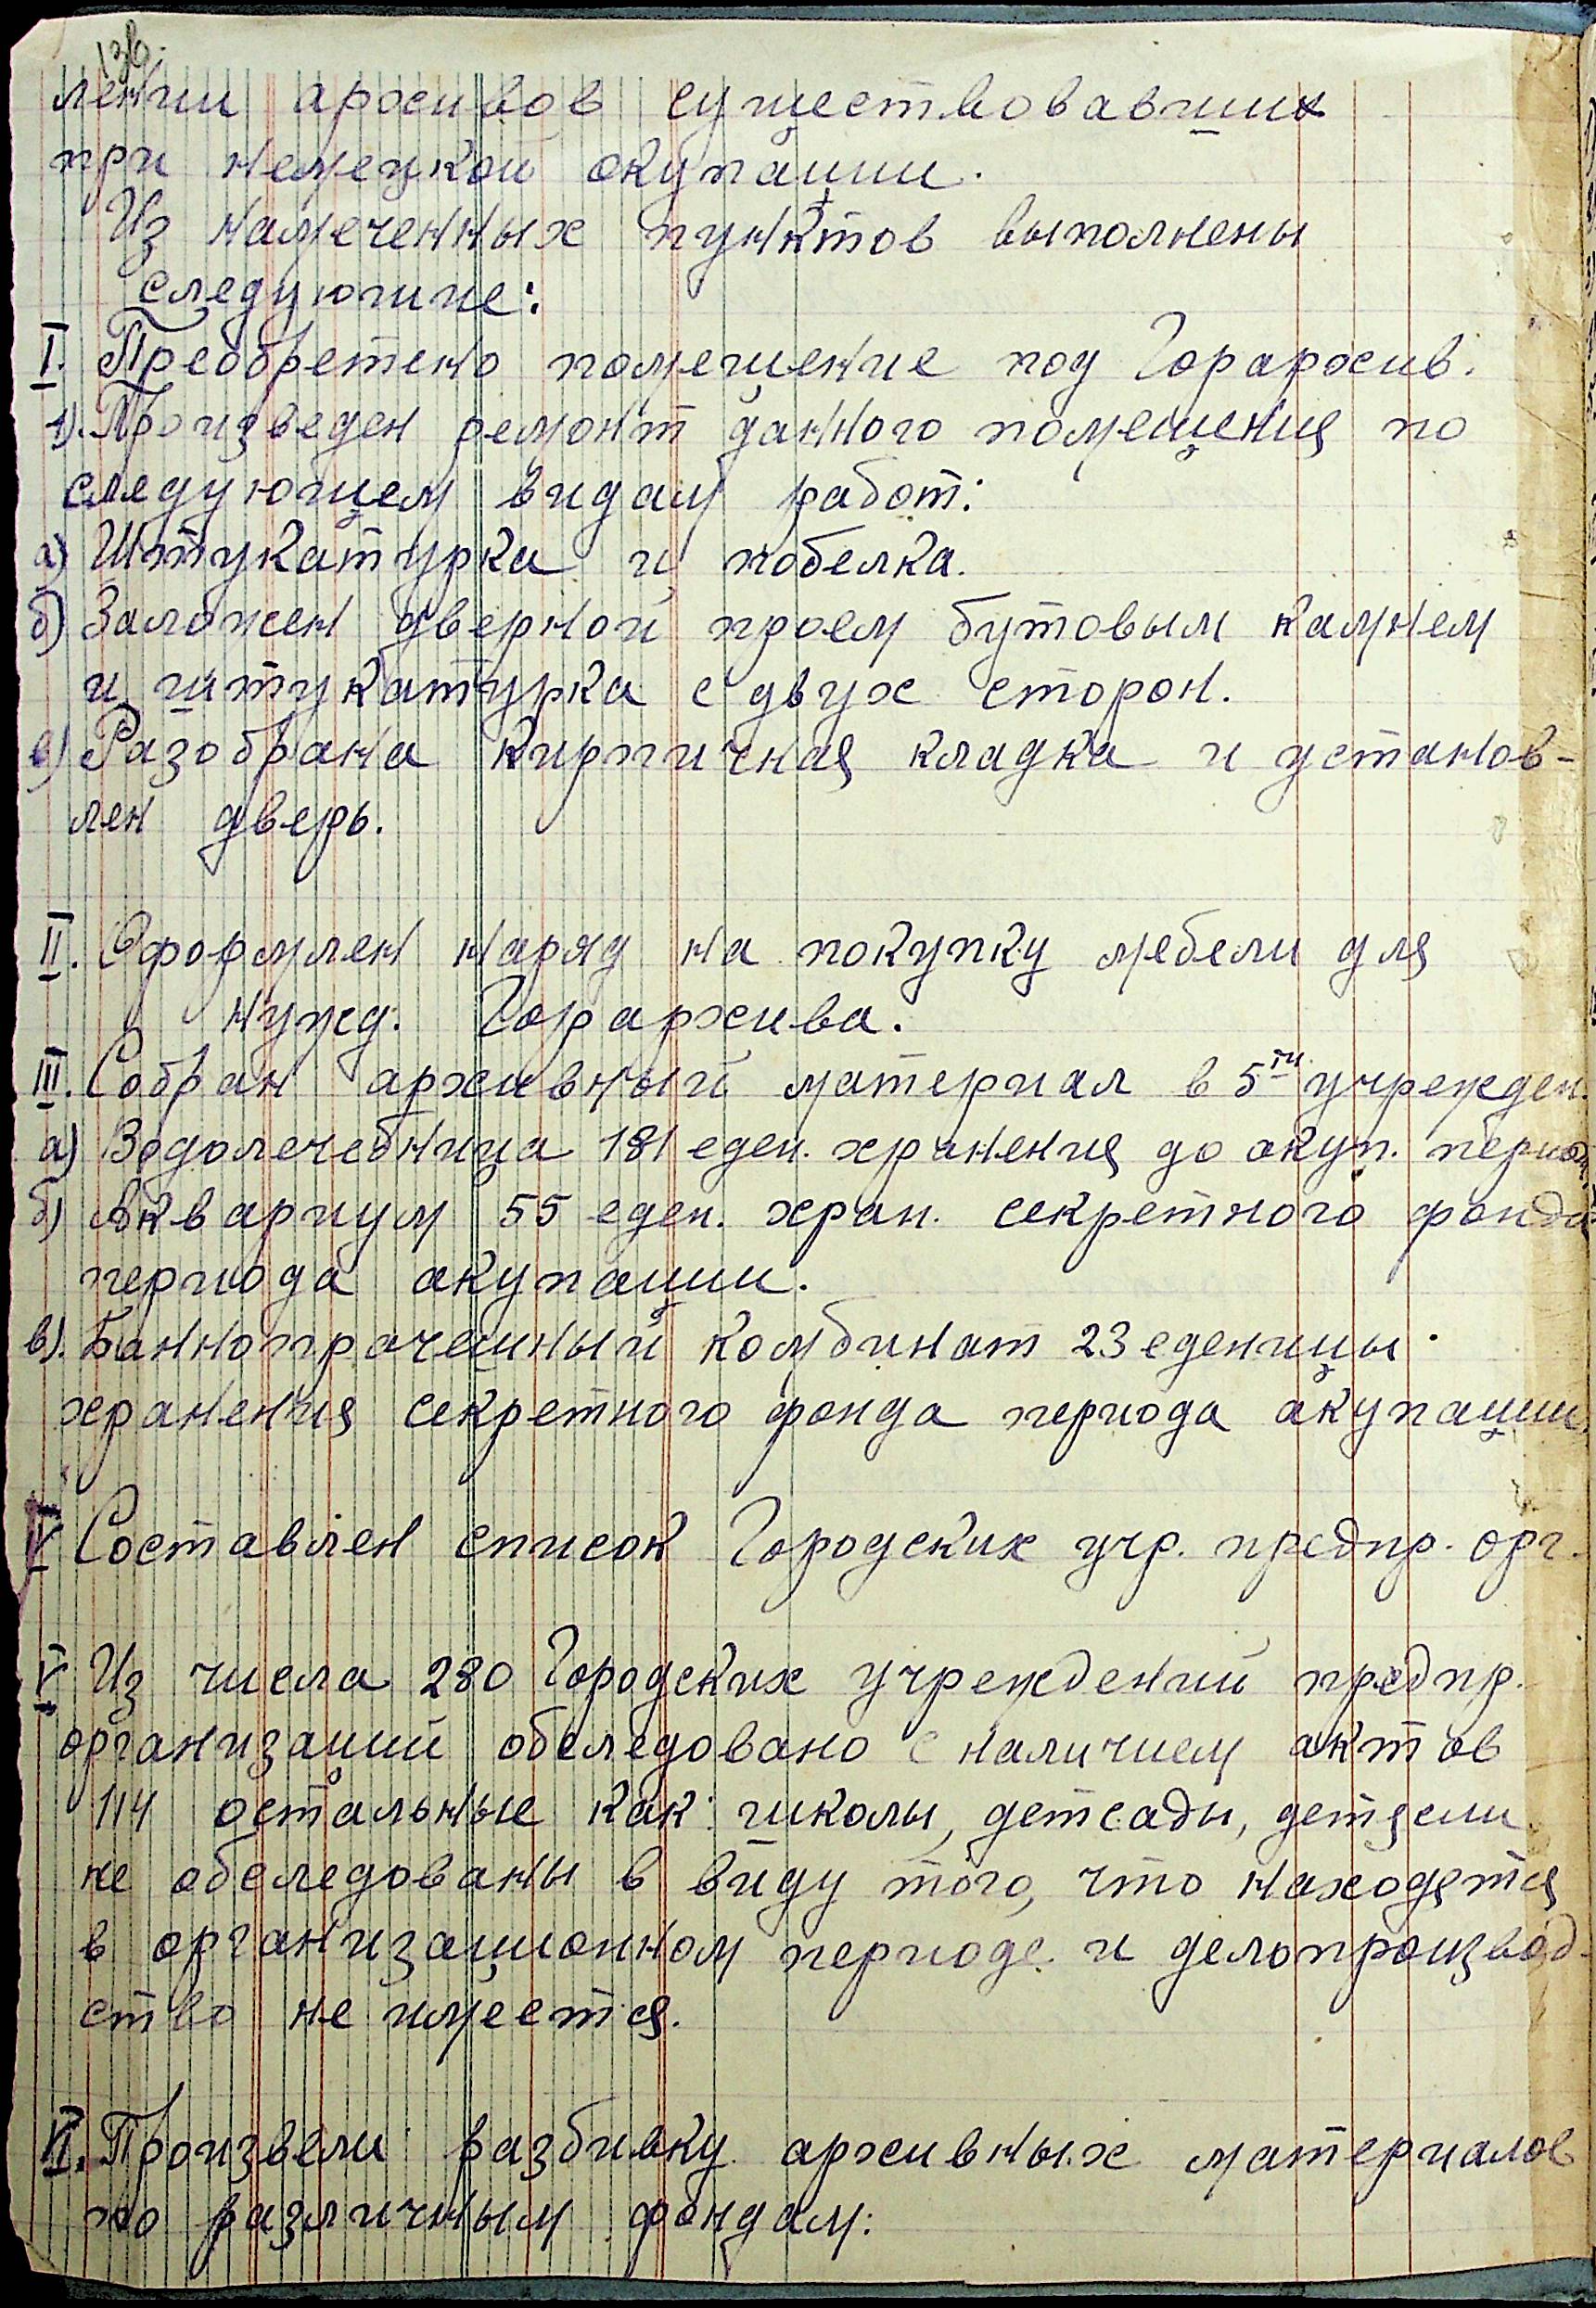 лении архивов существовавших
при немецкой окупации.
Из намеченных пунктов выполнены
следующие:
I. Преобретено помещение под Горархив.
1). Произведен ремонт данного помещения по
следующем видам работ:
а) Штукатурка и побелка.
б) Заложен дверной проем бутовым камнем
и штукатурка с двух сторон.
в) Разобрана кирпичная кладка и установ-
лен дверь.
II. Оформлен наряд на покупку мебели для
нужд. Горархива.
III. Собран архивный материал в 5ти учрежден.
а) Водолечебница 181 еден. хранения до окуп. период
б) Аквариум 55 еден. хран. секретного фонда
периода акупации.
в). Баннопрачешный комбинат 23 еденицы
хранения секретного фонда периода акупации.
IV Составлен список Городских учр. предпр. орг.
V Из числа 280 Городских учреждений предпр.
организаций обследовано с наличием актов
114 остальные как: школы, детсады, детясли
не обследованы в виду того, что находятся
в организационном периоде и делопроизвод-
ство не имеется.
VI. Произвели разбивку архивных материалов
по различным фондам: